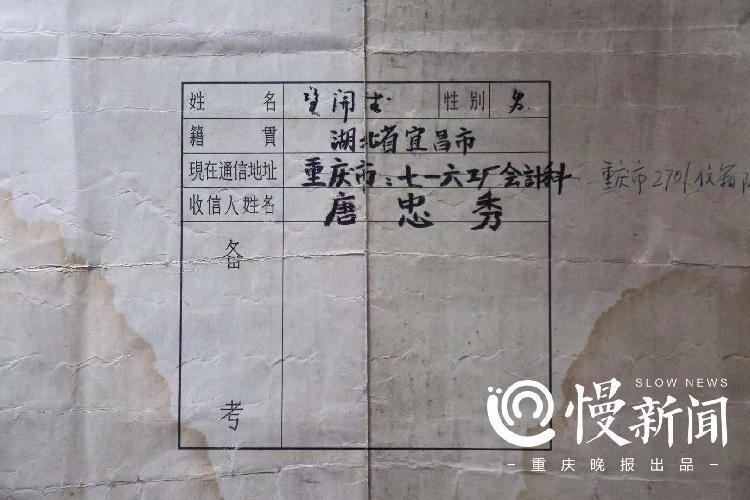 姓名 開 性别 男.
籍貫 湖北省宜昌市
現在通信地址 重庆市:七一六工厂会計科 重庆市2701信箱
收信人姓名 唐忠秀
备考
SLOW NEWS
慢新闻
-重庆晚报出品-